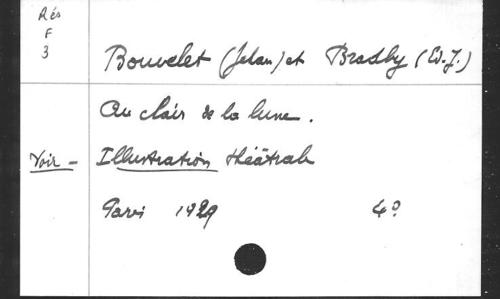 Rés
F
3
Bouvelet (Jehan) et Bradby (Ed. J.)
Au clair de la lune.
Voir - Illustration théâtrale
Paris 1929 4º